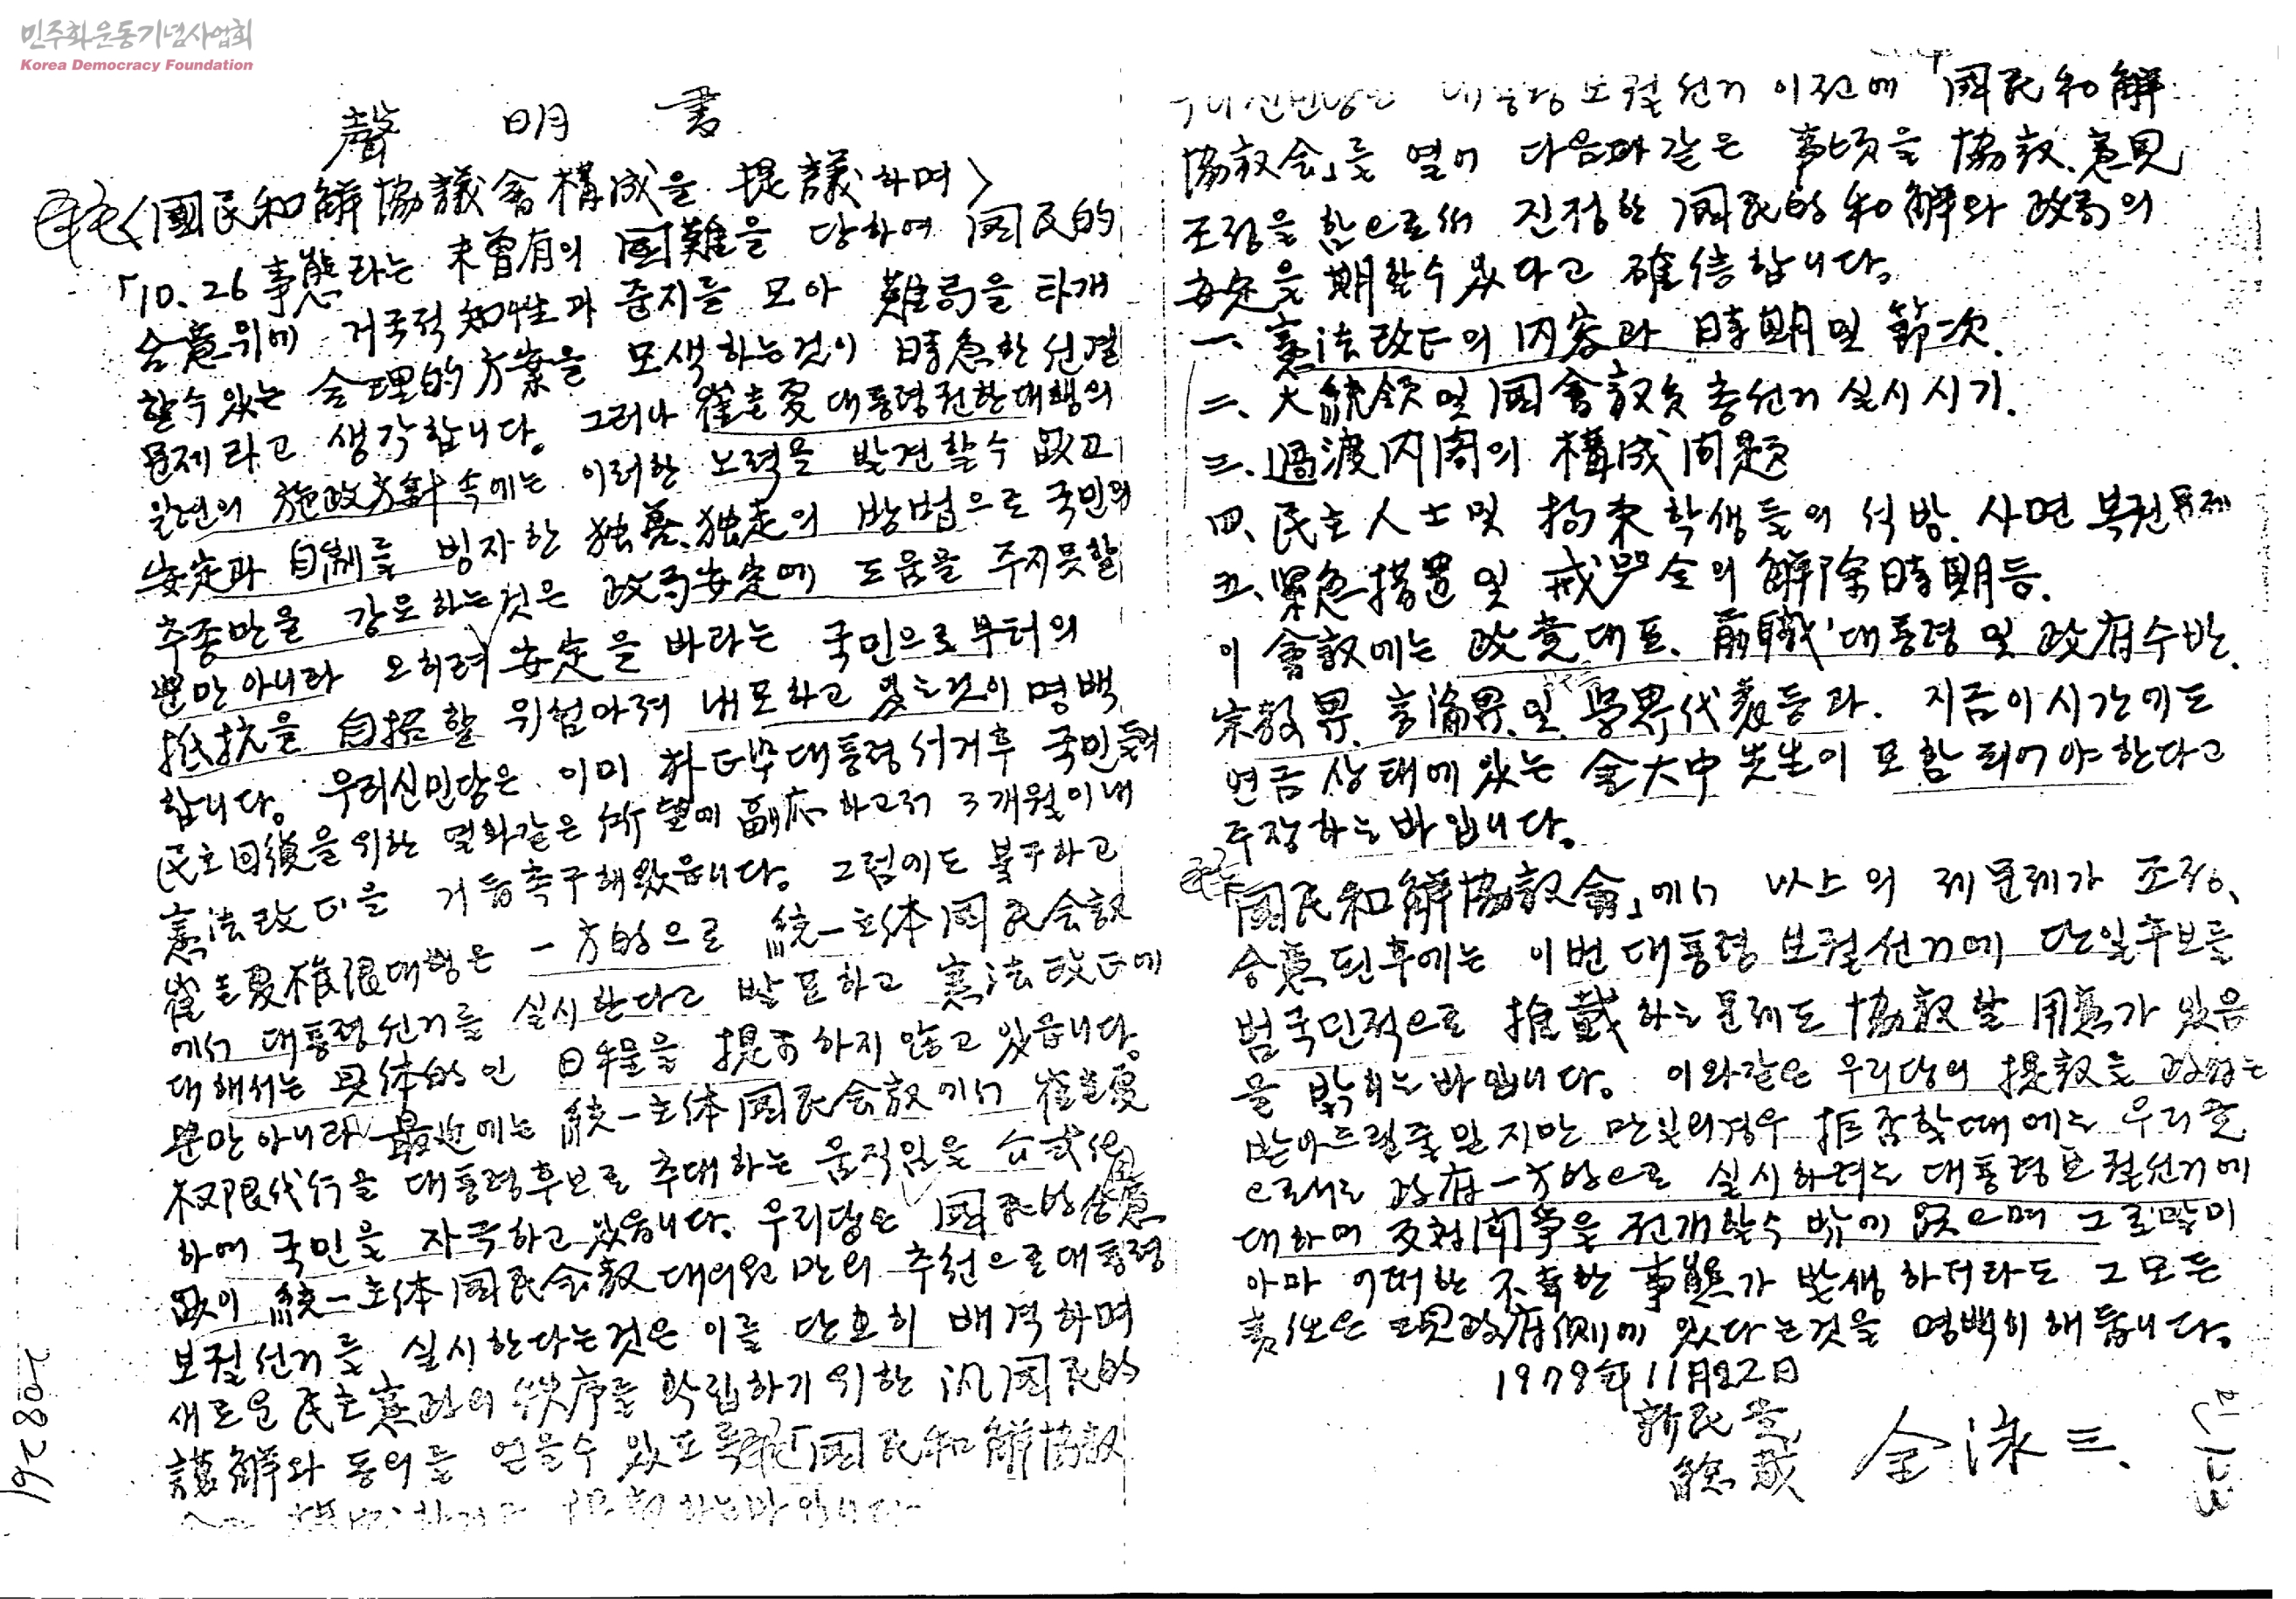 민주화운동기념사업회
Korea Democracy Foundation
聲 明 書
〈國民和解協議會構成을 提議하며〉
「10.26事態라는 未曾有의 國難을 당하여 国民的
合意위에 거국적 知性과 중지를 모아 難局을 타개
할수 있는 合理的方案을 모색하는것이 時急한 선결
문제라고 생각합니다. 그러나 崔圭夏대통령권한대행의
일련의 施政方針속에는 이러한 노력을 발견할수 없고
安定과 自制를 빙자한 独善、独走의 방법으로 국민의
추종만을 강요하는것은 政局安定에 도움을 주지못할
뿐만아니라 오히려 安定을 바라는 국민으로부터의
抵抗을 自招할 위험마저 내포하고 있는것이 명백
합니다. 우리신민당은 이미 朴正熙대통령서거후 국민들의
民主回復을위한 열화같은 所望에 副応하고저 3개월이내
憲法改正을 거듭촉구해왔읍니다. 그럼에도 불구하고
崔圭夏権限대행은 一方的으로 統一主体国民会議
에서 대통령선거를 실시한다고 발표하고 憲法改正에
대해서는 具体的인 日程을 提示하지 않고 있읍니다.
뿐만아니라 最近에는 統一主体國民会議에서 崔圭夏
权限代行을 대통령후보로 추대하는 움직임을 公式化
하여 국민을 자극하고 있읍니다. 우리당은 国民的合意
없이 統一主体国民会議 대의원만의 추천으로 대통령
보궐선거를 실시한다는것은 이를 단호히 배격하며
새로운 民主憲政의 秩序를 확립하기 위한 汎国民的
諒解와 동의를 얻을수 있도록 「国民和解協議
提議하는바입니다
우리신민당은 대통령보궐선거 이전에 「國民和解
協議会」를 열어 다음과같은 事項을 協議、意見
조정을 함으로써 진정한 国民的和解와 政局의
安定을 期할수 있다고 確信합니다.
一、憲法改正의 内容과 時期 및 節次.
二、大統領및 国會議員 총선거 실시 시기.
三、過渡内閣의 構成問題
四、民主人士 및 拘束학생들의 석방、사면 복권문제
五、緊急措置 및 戒嚴令의 解除時期등.
이 會議에는 政党대표、前職대통령 및 政府수반、
宗敎界、言論界、및 学界代表등과、지금이시간에도
연금 상태에 있는 金大中先生이 포함 되어야한다고
주장하는바입니다.
國民和解協議會」에서 以上의 제문제가 조정、
合意된후에는 이번 대통령 보궐선거에 단일후보를
범국민적으로 推戴하는문제도 協議할 用意가 있음
을 밝히는바입니다. 이와같은 우리당의 提議를 政府는
받아드릴줄 믿지만 만일의경우 拒否할때에는 우리들
으로서는 政府一方的으로 실시하려는 대통령보궐선거에
대하여 反対闘爭을 전개할수 밖에 없으며 그로말미
아마 어떠한 不幸한 事態가 발생하더라도 그모든
責任은 現政府側에 있다는것을 명백히해둡니다.
1979年11月22日
新民党
総裁 金泳三